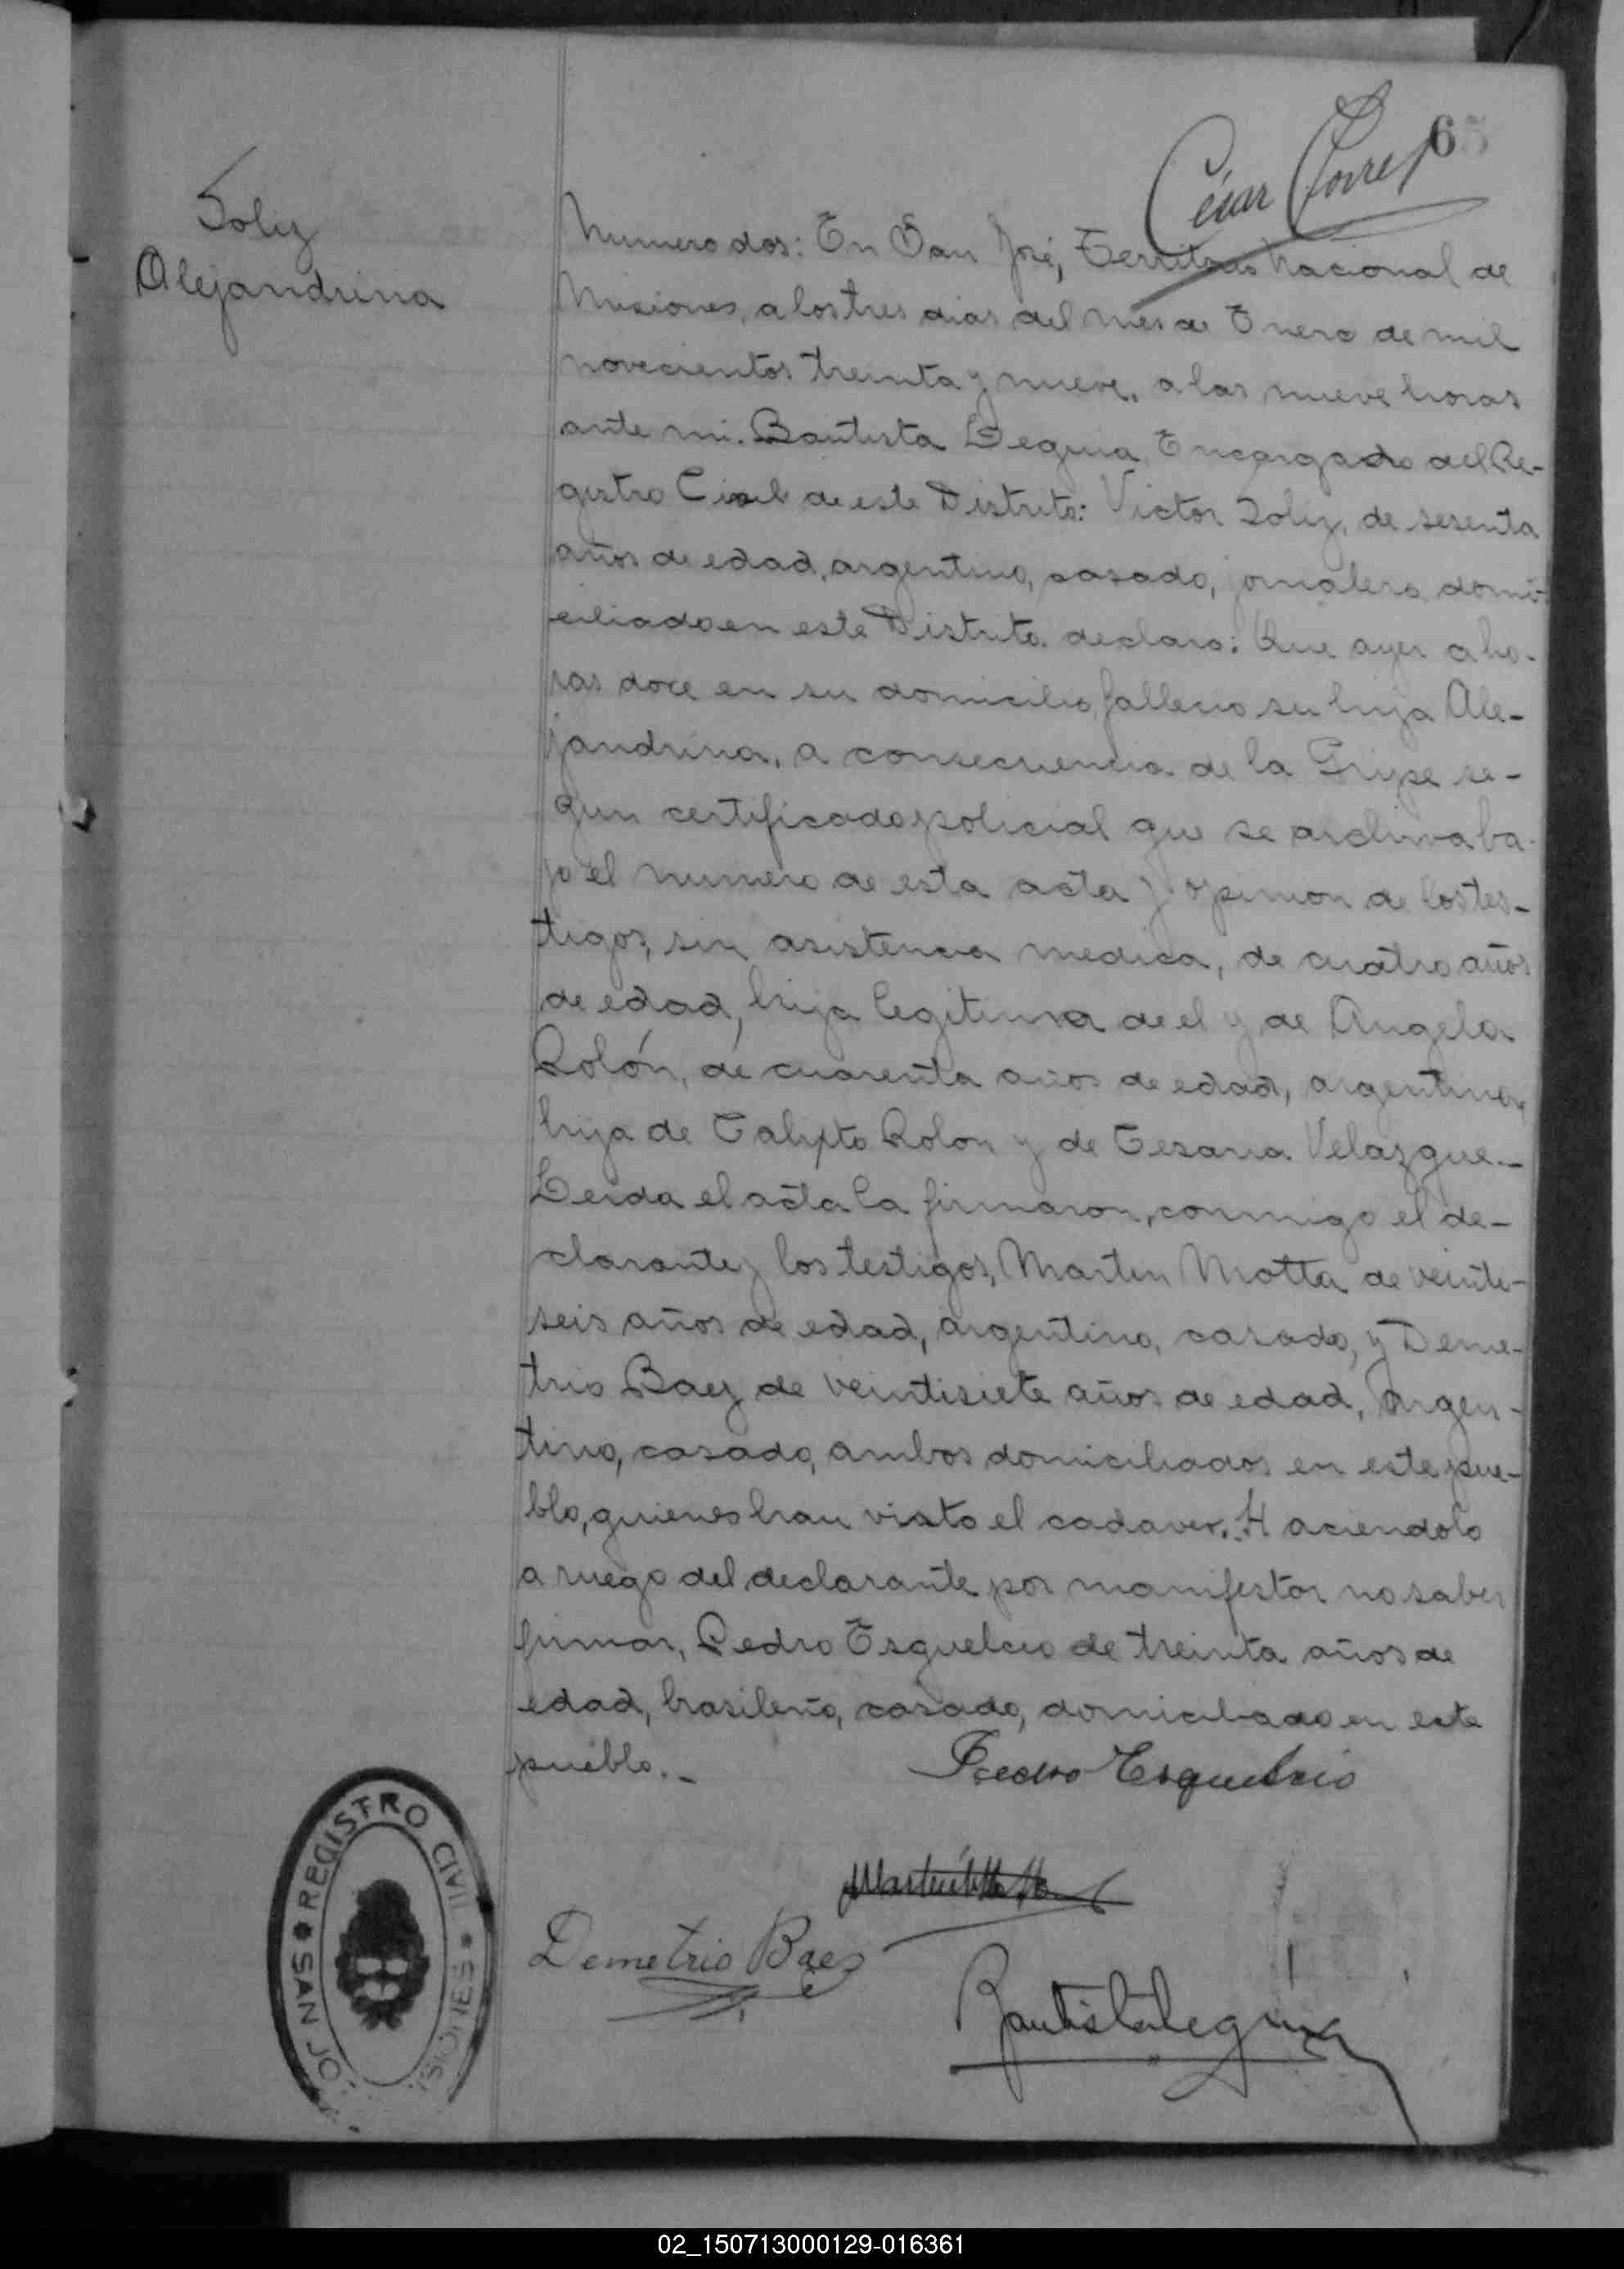 65
César Torres
Soliz
Alejandrina
Numero dos: En San José, Territorio Nacional de
Misiones, a los tres dias del mes de Enero de mil
novecientos treinta y nueve, a las nueve horas
ante mi. Bautista Leguia, Encargado del Re-
gistro Civil de este Distrito: Victor Soliz, de sesenta
años de edad, argentino, casado, jornalero, domi-
ciliado en este Distrito. declaro: Que ayer a ho-
ras doce en su domicilio, fallecio su hija Ale-
jandrina, a consecuencia de la Gripe se-
gun certificado policial que se archiva ba-
jo el numero de esta acta y opinion de los tes-
tigos, sin asistencia medica, de cuatro años
de edad, hija legitima de el y de Angela
Rolón, de cuarenta años de edad, argentina,
hija de Calipto Rolon y de Cesaria Velazque.-
Leida el acta la firmaron, conmigo el de-
clarante y los testigos, Martin Motta de veinti-
seis años de edad, argentino, casado, y Deme-
trio Baez de veintisiete años de edad, argen-
tino, casado, ambos domiciliados en este pue-
blo, quienes han visto el cadaver. Haciendolo
a ruego del declarante por manifestar no saber
firmar, Pedro Esquelcio de treinta años de
edad, brasileño, casado, domiciliado en este
pueblo.-
Pedro Esquelcio
Martin Motta
Demetrio Baez
Bautista Leguia
REGISTRO CIVIL
SAN JOSE MISIONES
02_150713000129-016361